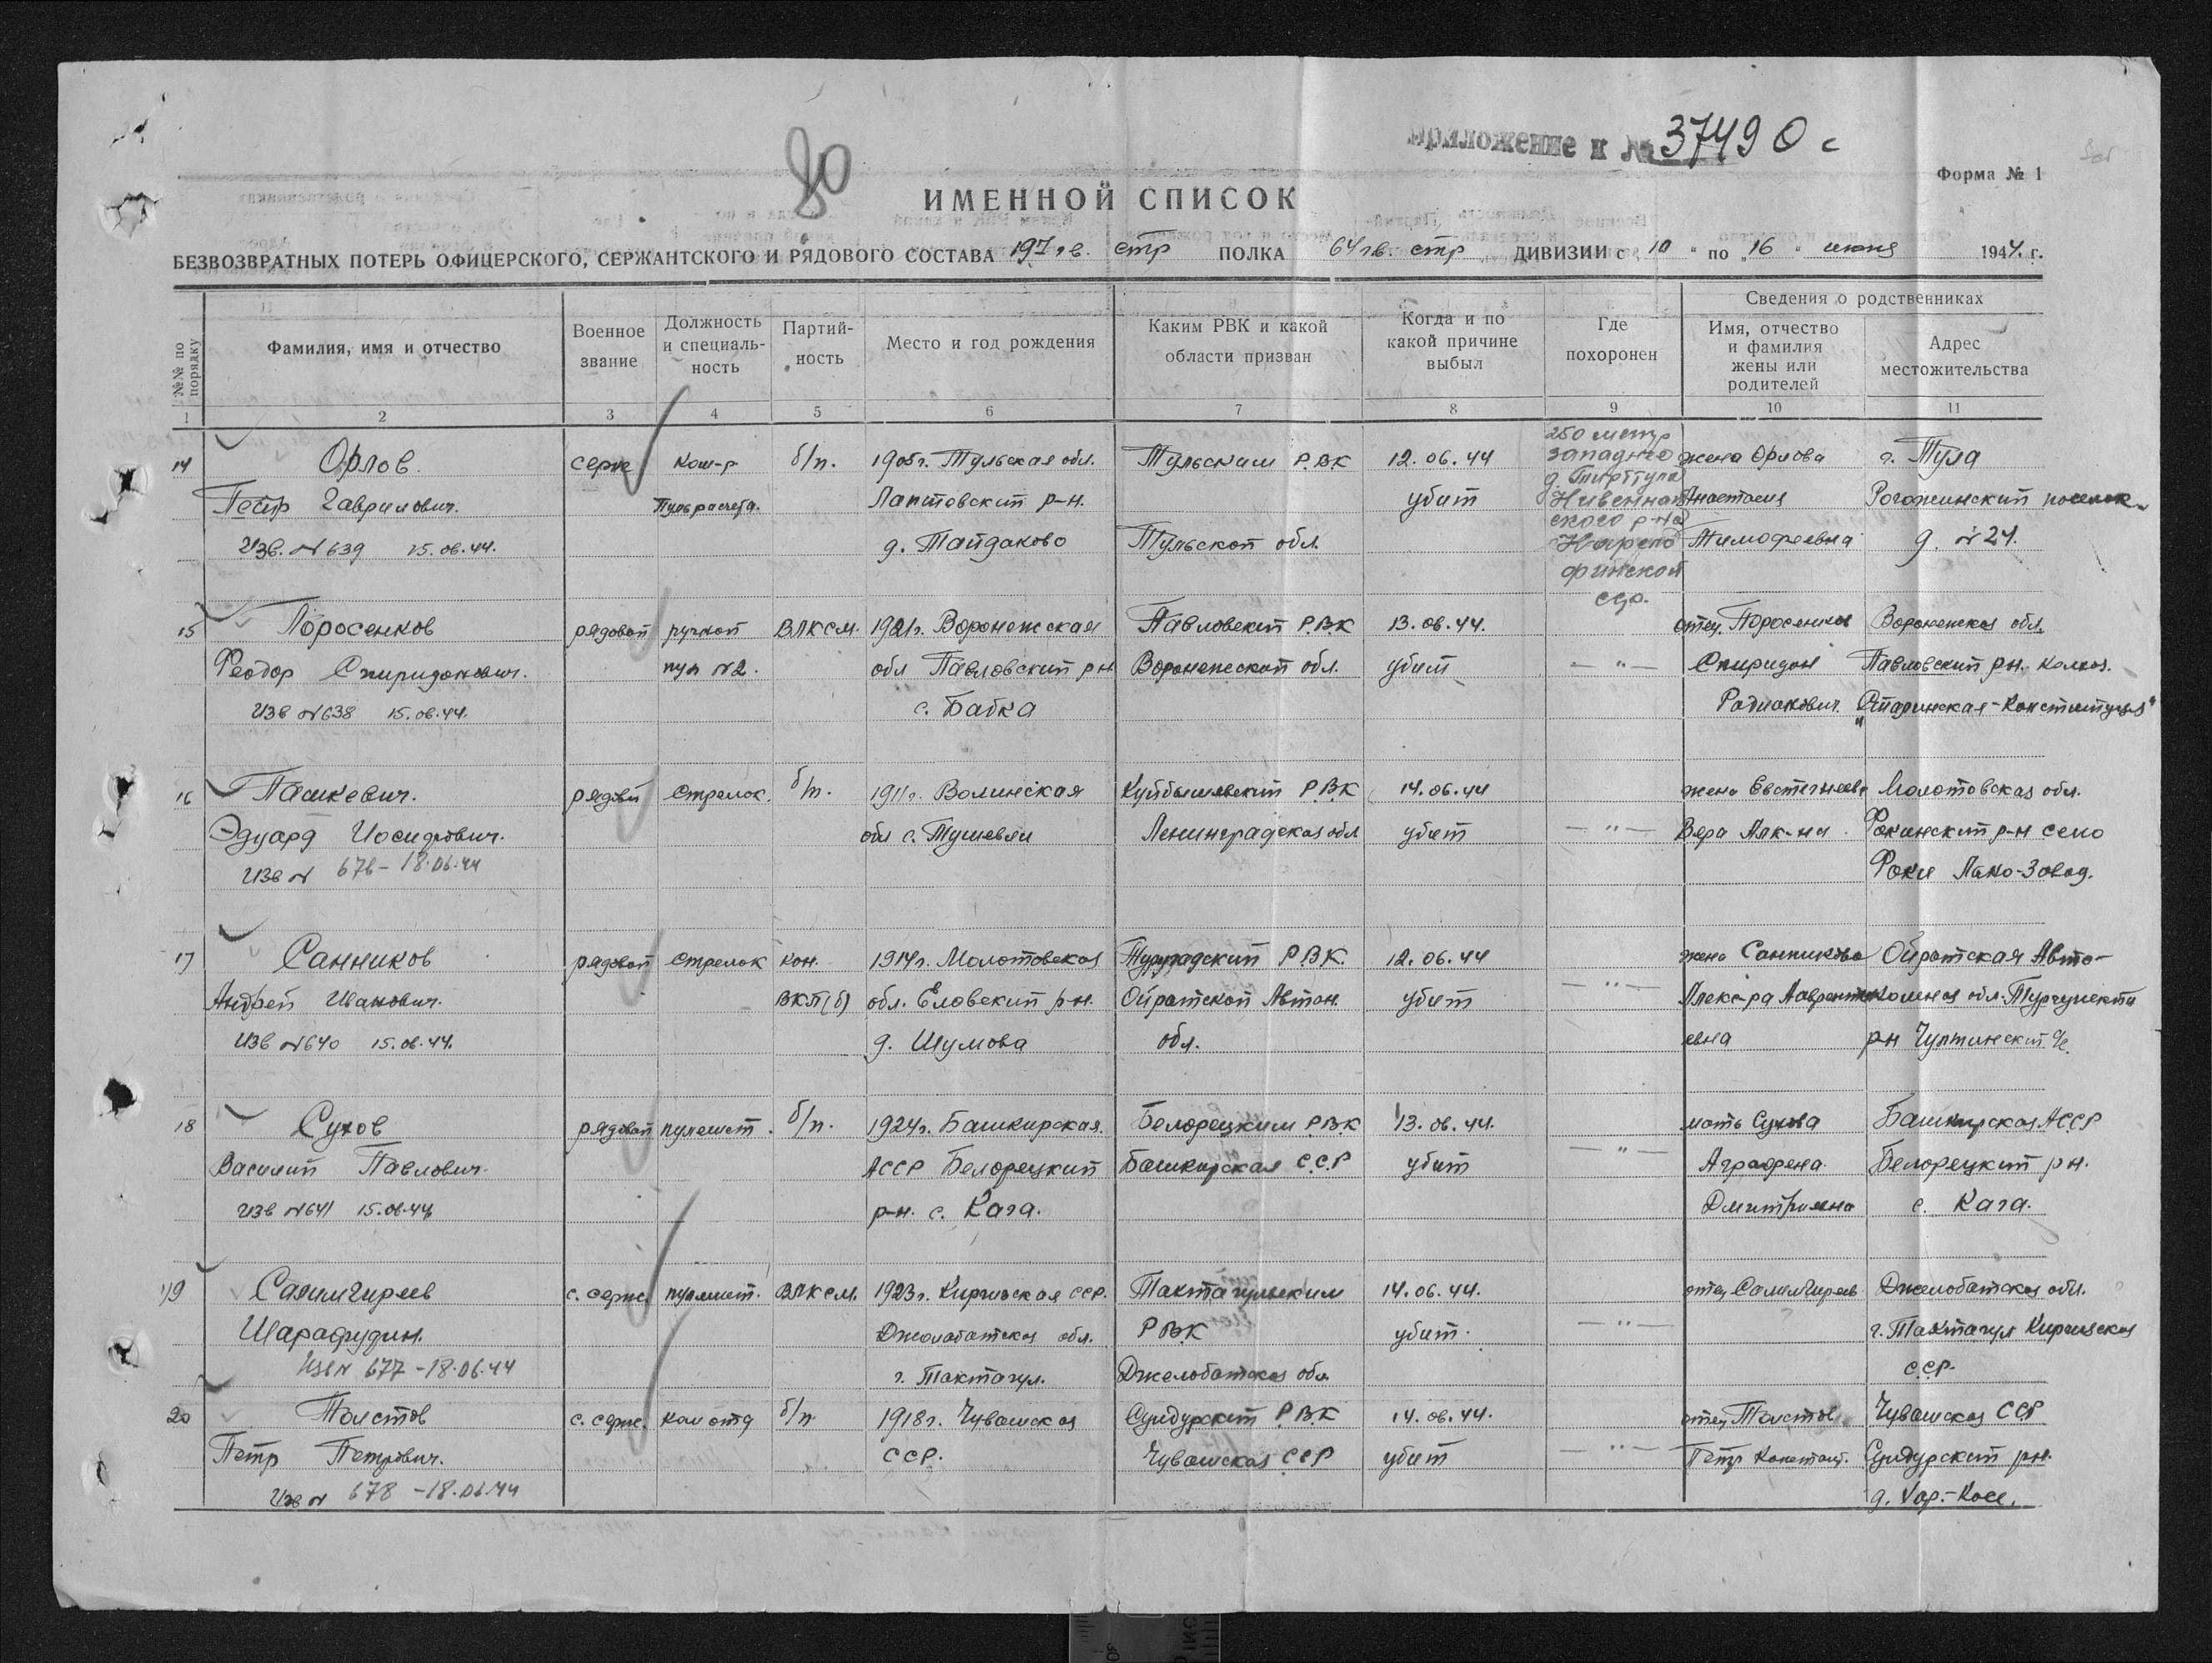 80
Приложение к № 37490 с
Форма № 1
ИМЕННОЙ СПИСОК
БЕЗВОЗВРАТНЫХ ПОТЕРЬ ОФИЦЕРСКОГО, СЕРЖАНТСКОГО И РЯДОВОГО СОСТАВА 197 гв. стр ПОЛКА 64 гв. стр ДИВИЗИИ с 10 " по "16 " июня 1944. г.
№№ по порядку
Фамилия, имя и отчество
Военное звание
Должность и специальность
Партийность
Место и год рождения
Каким РВК и какой области призван
Когда и по какой причине выбыл
Где похоронен
Сведения о родственниках
Имя, отчество и фамилия жены или родителей
Адрес местожительства
1 2 3 4 5 6 7 8 9 10 11
14 Орлов серж ком-р б/п. 1905г. Тульская обл. Тульским Р.ВК 12.06.44 250 метр западнее жена Орлова г. Тула
Петр Гаврилович. Пульрасчета. Лаптовский р-н. убит д. Анастасия Рогожинский поселок
Изв. №639 15.06.44. д. Тайдаково Тульской обл. ского р-на Карело Тимофеевна д. №24.
финской
ССР.
15 Поросенков рядовой ручной ВЛКСМ. 1921г. Воронежская Павловский Р.В.К 13.06.44. отец Поросенков Воронежская обл.
Феодор Спиридонович. пул №2. обл Павловский рн Воронежской обл. убит — " — Спиридон Павловский рн. колхоз.
Изв №638 15.06.44. с. Бабка Родионович. -Конституция"
16 Пашкевич. рядовой Стрелок. б/п. 1911г. Волинская Куйбышевский Р.В.К 14.06.44 жена Евстегнеева Молотовская обл.
Эдуард Иосифович. обл с. Ленинградская обл убит — " — Вера Алк-на Фокинский р-н село
Изв № 676 - 18.06.44 Фоки Завод.
17 Санников рядовой Стрелок кан. 1914г. Молотовская РВК. 12.06.44 жена Санникова Ойратская Авто-
Андрей Иванович. ВКП(б) обл. Еловский р-н. Ойратской Автон. убит — " — Алекс-ра Лаврентьевна номная обл.
Изв №640 15.06.44. д. Шумова обл. рн
18 Сухов рядовой пулемет. б/п. 1924г. Башкирская. Белорецким Р.В.К 13.06.44. мать Сухова Башкирская АССР
Василий Павлович. АССР Белорецкий Башкирская С.С.Р убит — " — Аграфена Белорецкий рн.
Изв №641 15.06.44 р-н. с. Кага. Дмитриевна с. Кага.
19 Салимгиреев с. серж. пулемет. ВЛКСМ. 1923г. Киргизская ССР. Токтагульским 14.06.44. отец Салимгиреев Джелобатская обл.
Шарафудин. Джолобатская обл. РВК убит. — " — г. Токтагул Киргизская
Изв № 677 - 18.06.44 г. Токтагул. Джелобатская обл. ССР.
20 Толстов с. серж. ком отд б/п 1918г. Чувашская Сундурский Р.В.К 14.06.44. отец Толстов Чувашская ССР
Петр Петрович. ССР. Чувашская ССР убит — " — Петр Констант. Сундурский рн.
Изв № 678 - 18.06.44